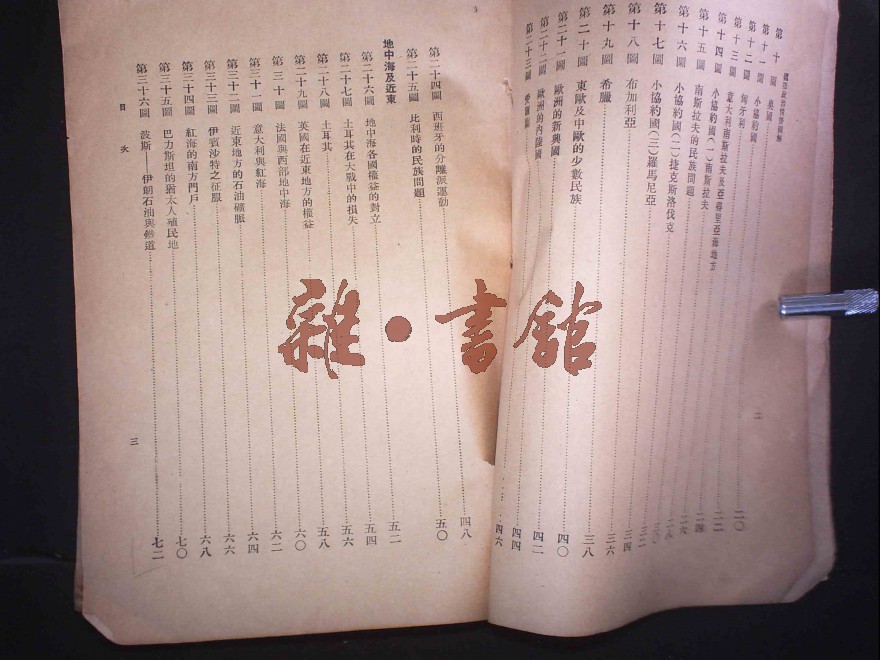 第十圖 奧國
第十一圖 小協約國
第十二圖 匈牙利 二〇
第十三圖 意大利南斯拉夫及亞得里亞海地方 二二
第十四圖 小協約國(一)南斯拉夫 二四
第十五圖 南斯拉夫的民族問題 二六
第十六圖 小協約國(二)捷克斯洛伐克 二八
第十七圖 小協約國(三)羅馬尼亞 三〇
第十八圖 布加利亞 三四
第十九圖 希臘 三六
第二十圖 東歐及中歐的少數民族 三八
第二十一圖 歐洲的新興國 四〇
第二十二圖 歐洲的內陸國 四二
第二十三圖 愛爾蘭 四四
四六
二
第二十四圖 西班牙的分離派運動 四八
第二十五圖 比利時的民族問題 五〇
地中海及近東
第二十六圖 地中海各國權益的對立 五二
第二十七圖 土耳其在大戰中的損失 五四
第二十八圖 土耳其 五六
第二十九圖 英國在近東地方的權益 五八
第三十圖 法國與西部地中海 六〇
第三十一圖 意大利與紅海 六二
第三十二圖 近東地方的石油礦脈 六四
第三十三圖 伊賓沙特之征服 六六
第三十四圖 紅海的南方門戶 六八
第三十五圖 巴力斯坦的猶太人殖民地 七〇
第三十六圖 波斯——伊朗石油與鐵道 七二
目次
三
雜·書館